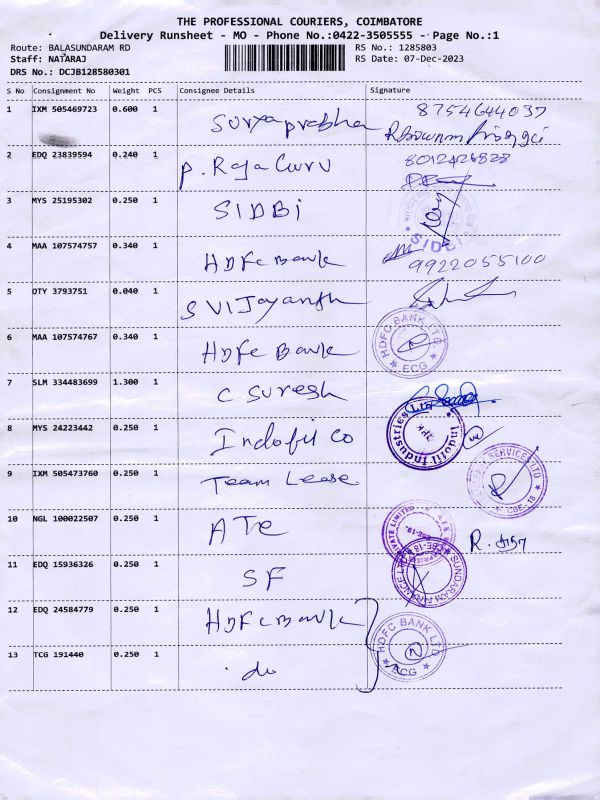 THE PROFESSIONAL COURIERS, COIMBATORE
Delivery Runsheet - MO - Phone No.:0422-3505555 - Page No.:1
Route: BALASUNDARAM RD RS No.: 1285803
Staff: NATARAJ RS Date: 07-Dec-2023
DRS No.: DCJB128580301
S No Consignment No Weight PCS Consignee Details Signature
1 IXM 505469723 0.600 1 Suryaprabha 8754644037
2 EDQ 23839594 0.240 1 P. Raja Guru 8012426828
3 MYS 25195302 0.250 1 SIDBi
SIDBI
4 MAA 107574757 0.340 1 HDFC Bank 9922055100
5 OTY 3793751 0.040 1 S VIJayanth
6 MAA 107574767 0.340 1 HDFC Bank HDFC BANK LTD. ECG
7 SLM 334483699 1.300 1 C Suresh
8 MYS 24223442 0.250 1 Indofil Co Indofil Industries Ltd
9 IXM 505473760 0.250 1 Team Lease SERVICES LTD CBE-18
10 NGL 100022507 0.250 1 ATE PRIVATE LIMITED CBE-18. R.
11 EDQ 15936326 0.250 1 SF SUNDARAM FINANCE LTD CBE-18
12 EDQ 24584779 0.250 1 HDFC Bank HDFC BANK LTD ECG
13 TCG 191440 0.250 1 do